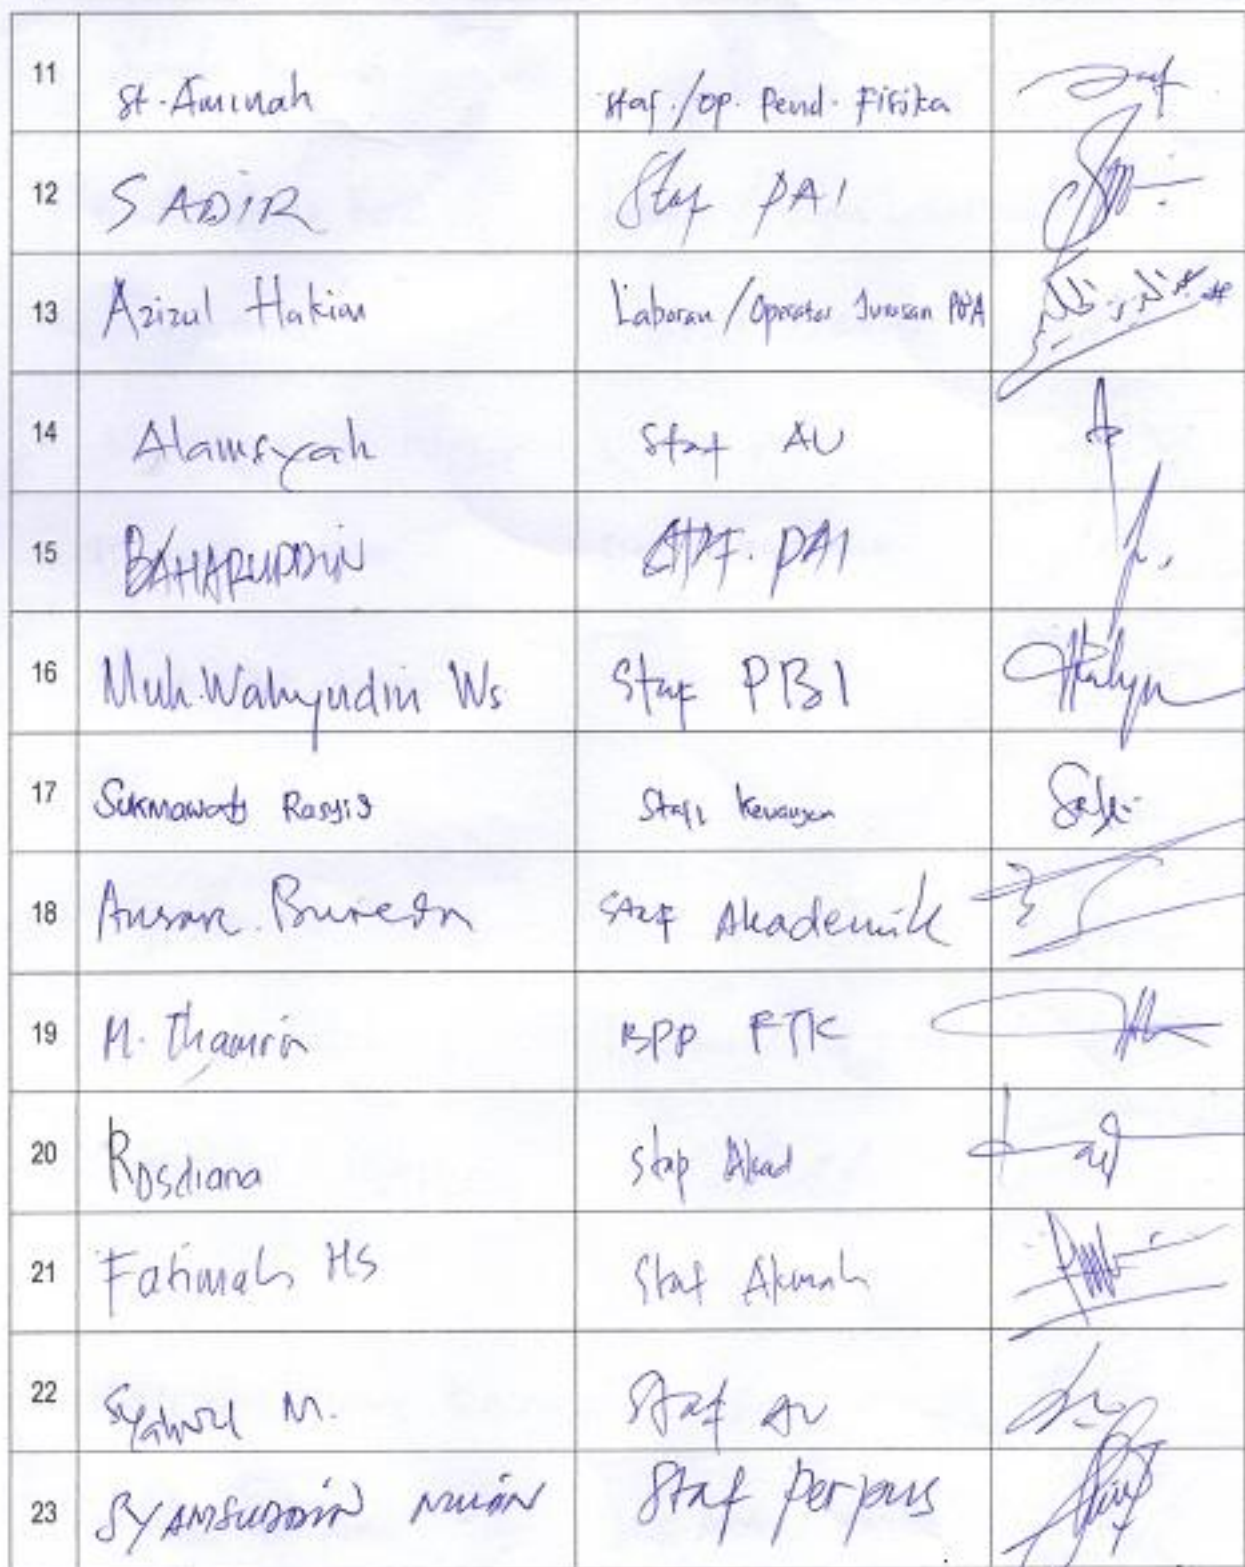 11 St. Aminah Staf./Op. Pend. Fisika
12 SADIR Staf PAI
13 Azizul Hakim Laboran/Operator Jurusan
14 Alamsyah Staf AU
15 BAHARUDDIN STAF. PAI
16 Muh. Wahyudin Ws Staf PBI
17 Sukmawati Rasyid Staf Keuangan
18 Staf Akademik
19 M. Thamrin BPP FTK
20 Rosdiana stap Akad
21 Fatimah HS Staf
22 M. Staf AU
23 SYAMSUDDIN Staf Perpus